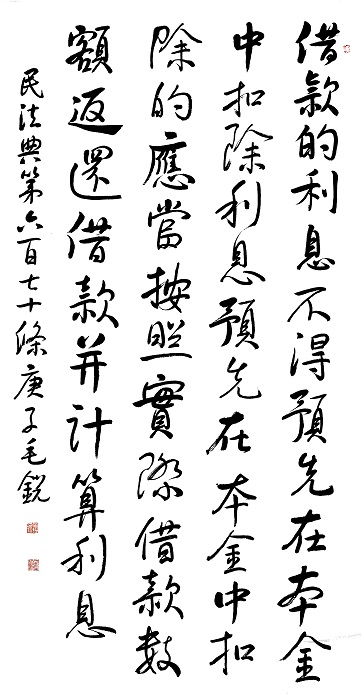 借款的利息不得預先在本金
中扣除利息預先在本金中扣
除的應當按照實際借款數
額返還借款并計算利息
民法典第六百七十條庚子毛銳